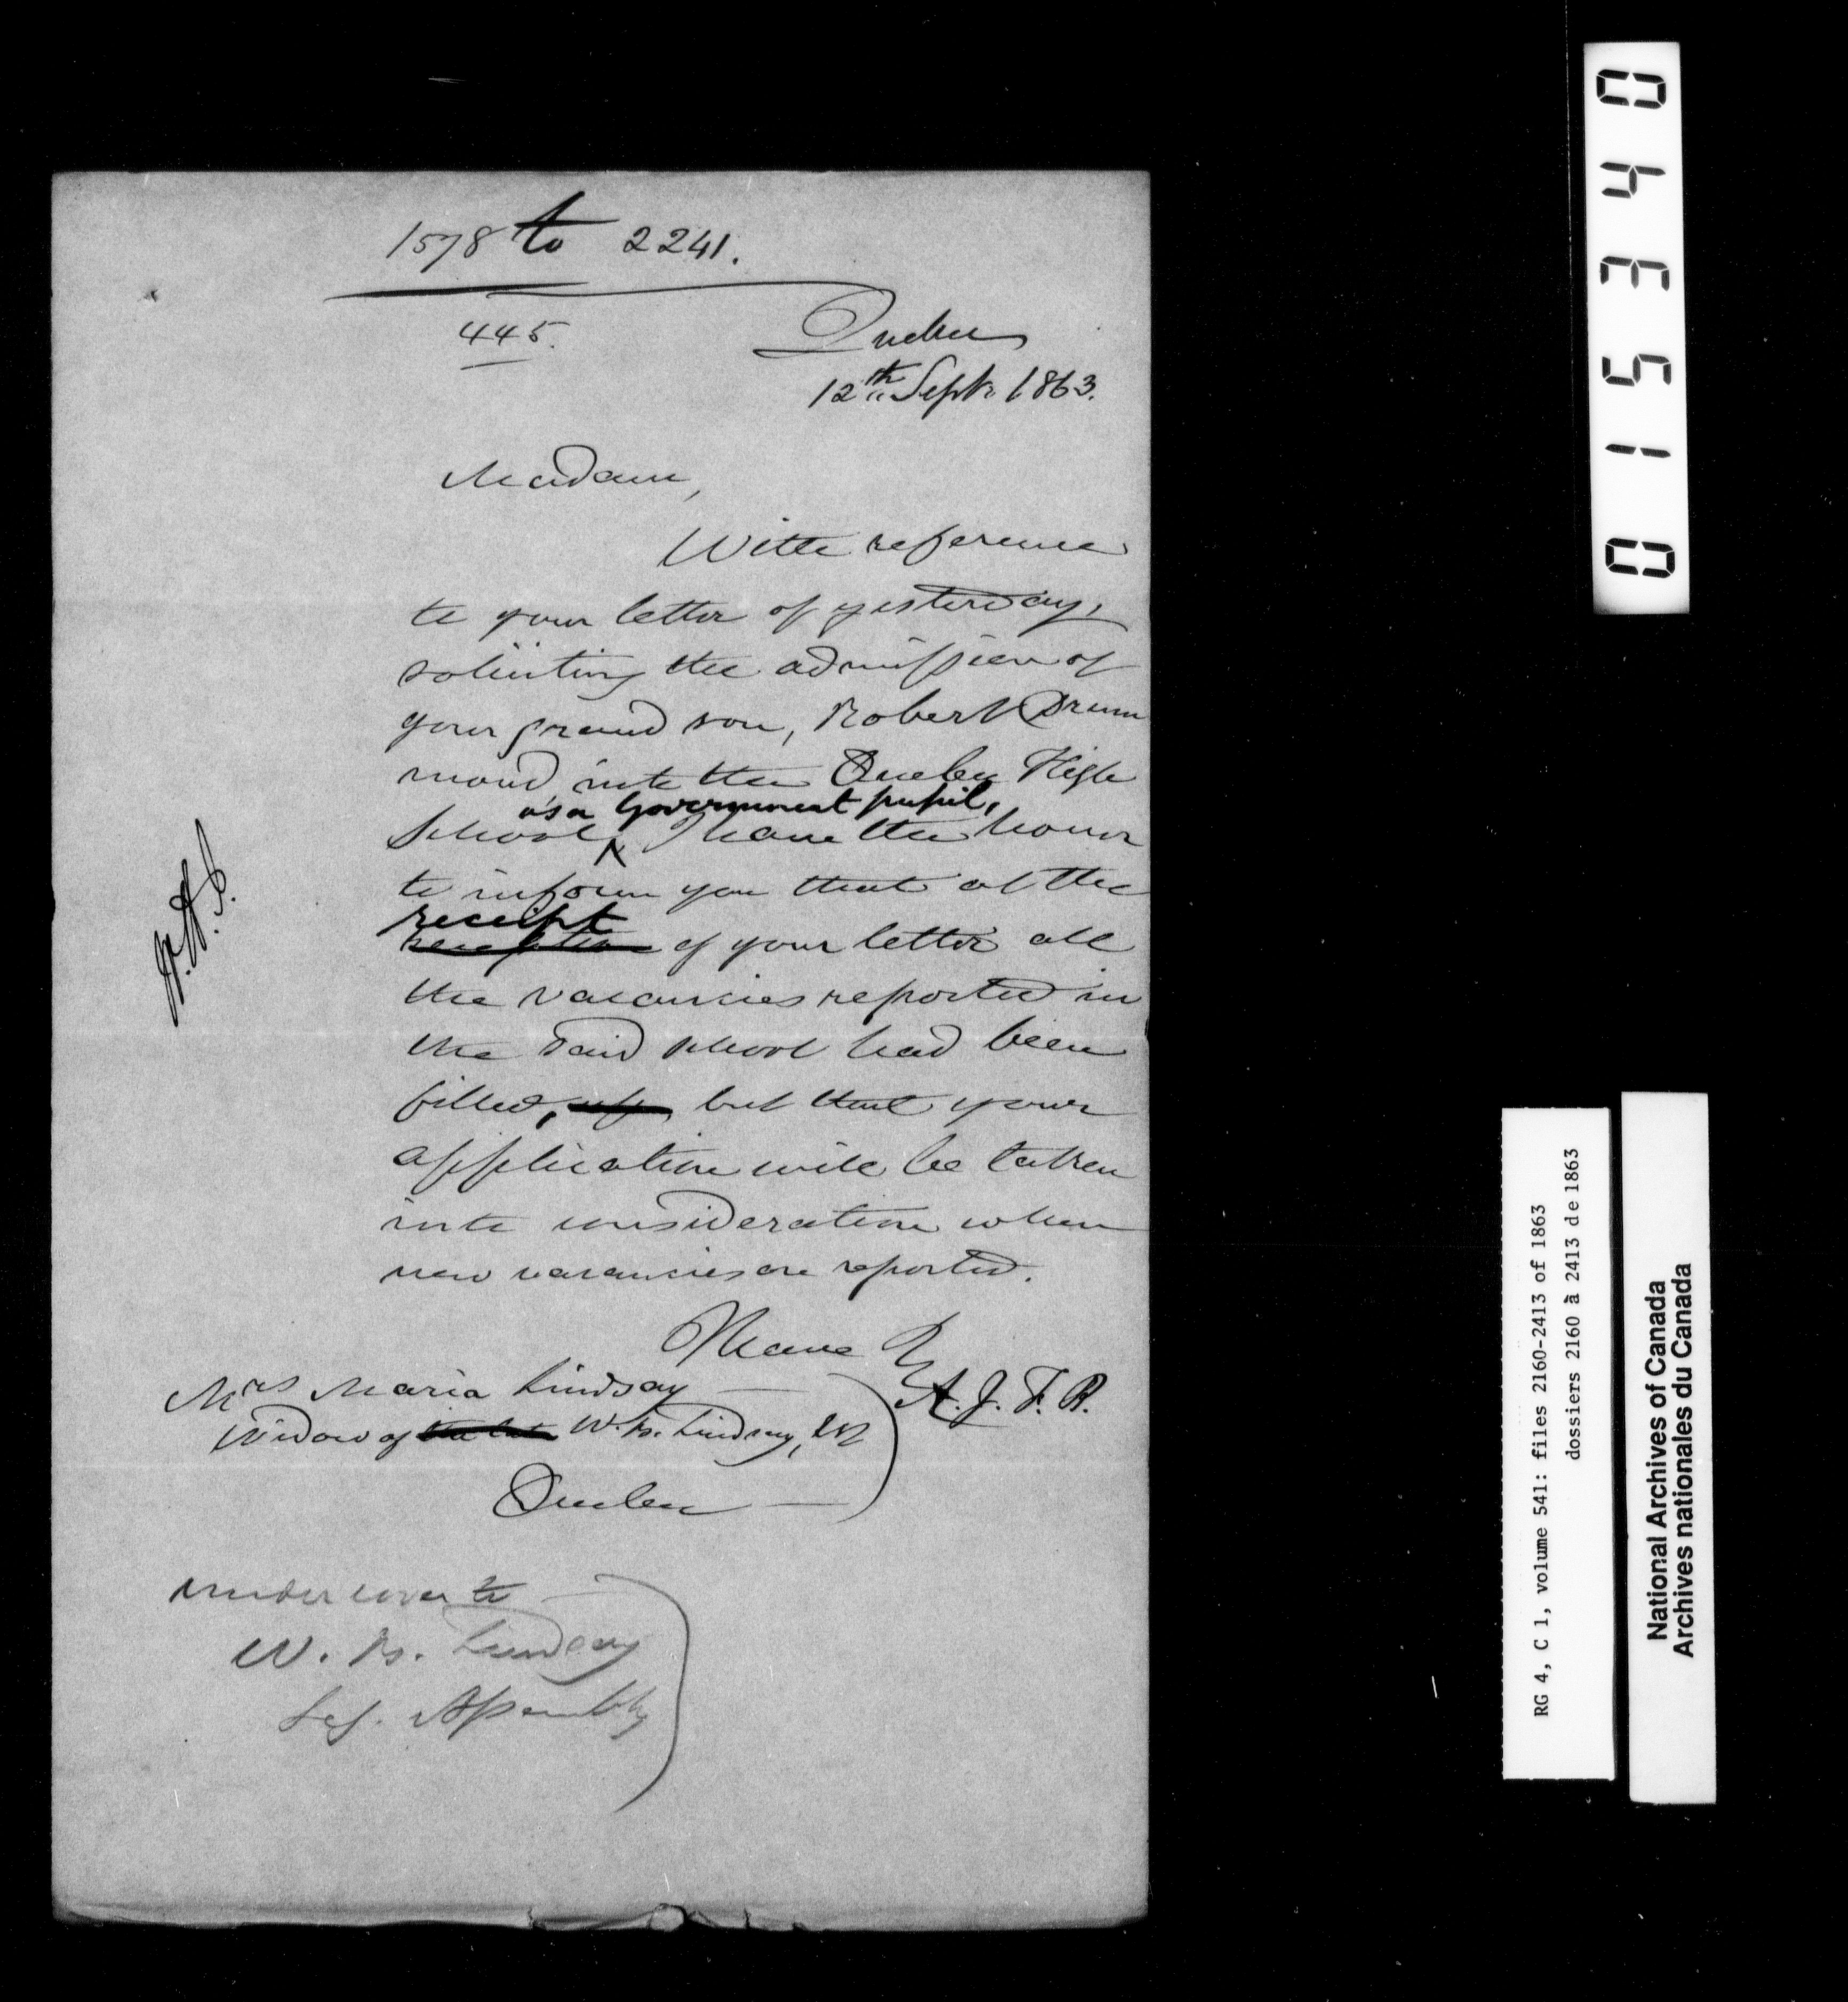 1578 to 2241.
445.
Quebec
12th Sept. 1863.
Madam,
With reference
to your letter of yesterday,
soliciting the admission of
your grand son, Robert Drum
mond into the Quebec High
as a Government pupil,
School, I have the honor
to inform you that at the
receipt
reception of your letter all
the vacancies reported in
the said school had been
filled, up but that your
application will be taken
into consideration when
new vacancies are reported.
I have &
A. J. F. R.
Mrs Maria Lindsay
Widow of the late W. B. Lindsay, Esq
Quebec
under cover to
W. B. Lindsay
Leg. Assembly
015340
RG 4, C 1, volume 541: files 2160-2413 of 1863
dossiers 2160 à 2413 de 1863
National Archives of Canada
Archives nationales du Canada